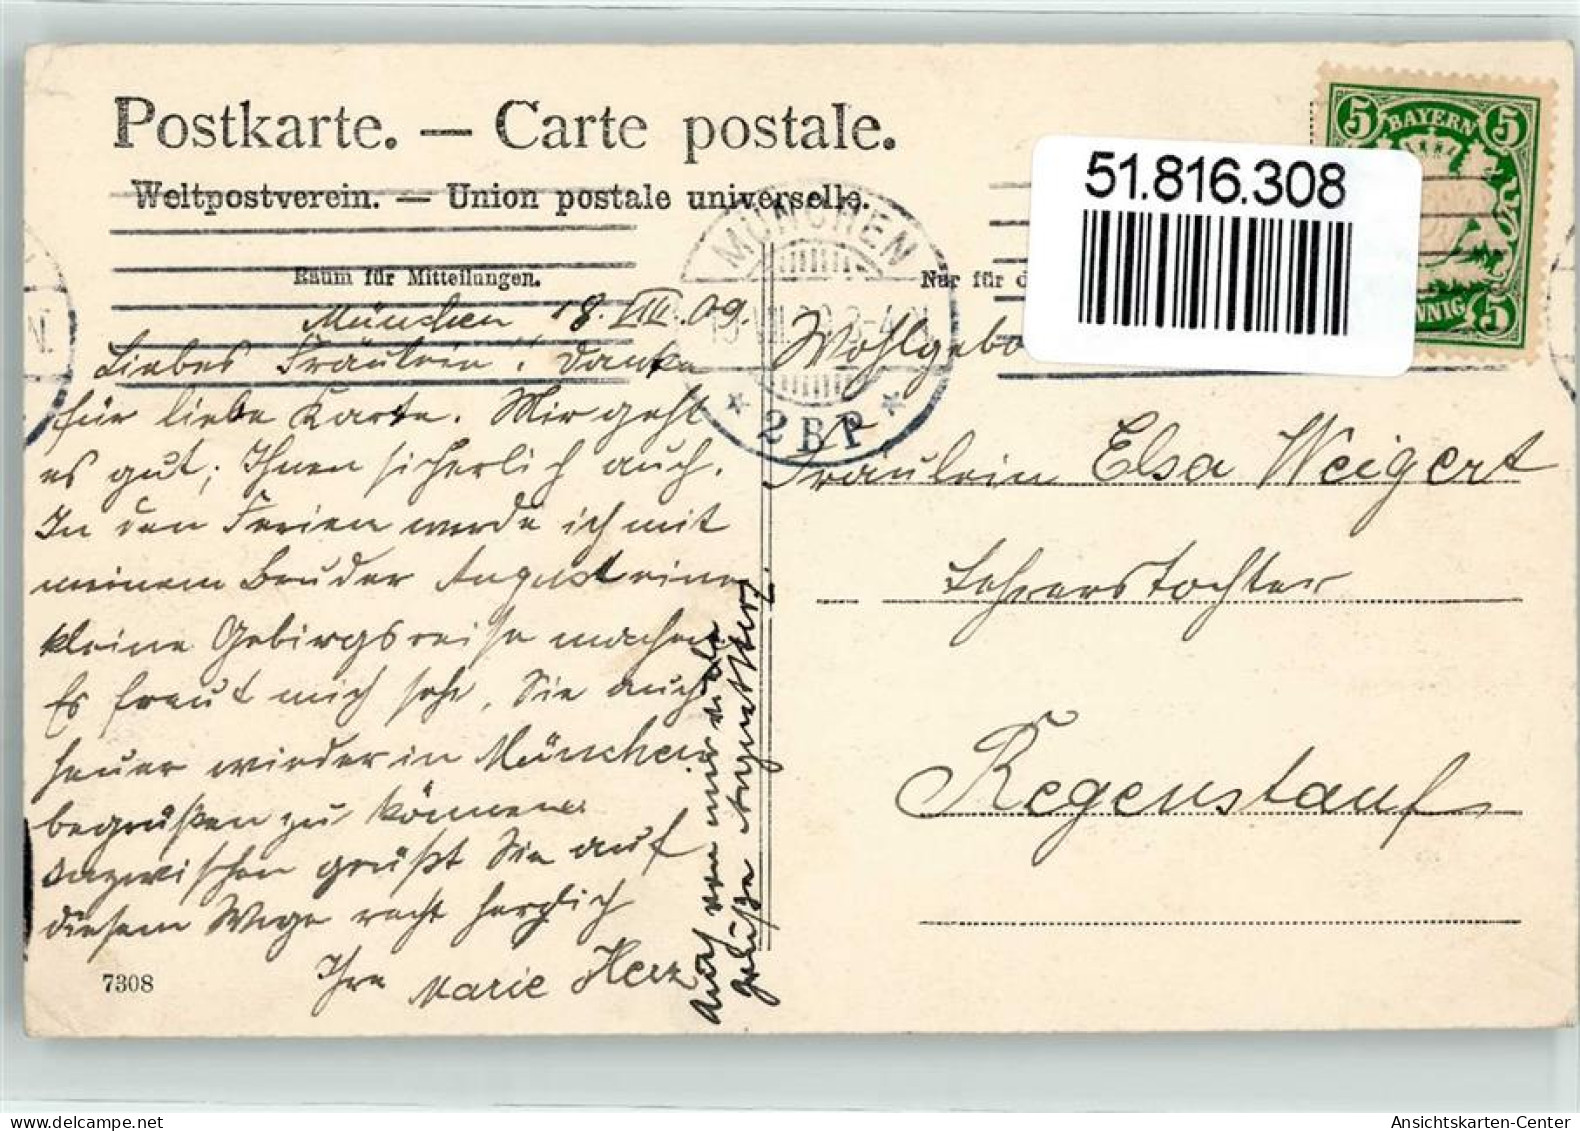 Postkarte. — Carte postale.
Weltpostverein. — Union postale universelle.
Raum für Mitteilungen.
München 18. VIII. 09.
Liebes Fräulein! Danke
für liebe Karte. Mir geht
es gut; Ihnen sicherlich auch.
In den Ferien werde ich mit
meinem Bruder August eine
kleine Gebirgsreise machen
Es freut mich sehr, Sie auch
heuer wieder in München
begrüßen zu können.
Inzwischen grüßt Sie auf
diesem Wege recht herzlich
Ihre Marie Herz
7308
Auch von mir viele
Grüße
MÜNCHEN
2 B P
Nur für d
51.816.308
5 BAYERN 5
5
Wohlgebo
Fräulein Elsa Weigert
Lehrerstochter
Regenstauf
Ansichtskarten-Center